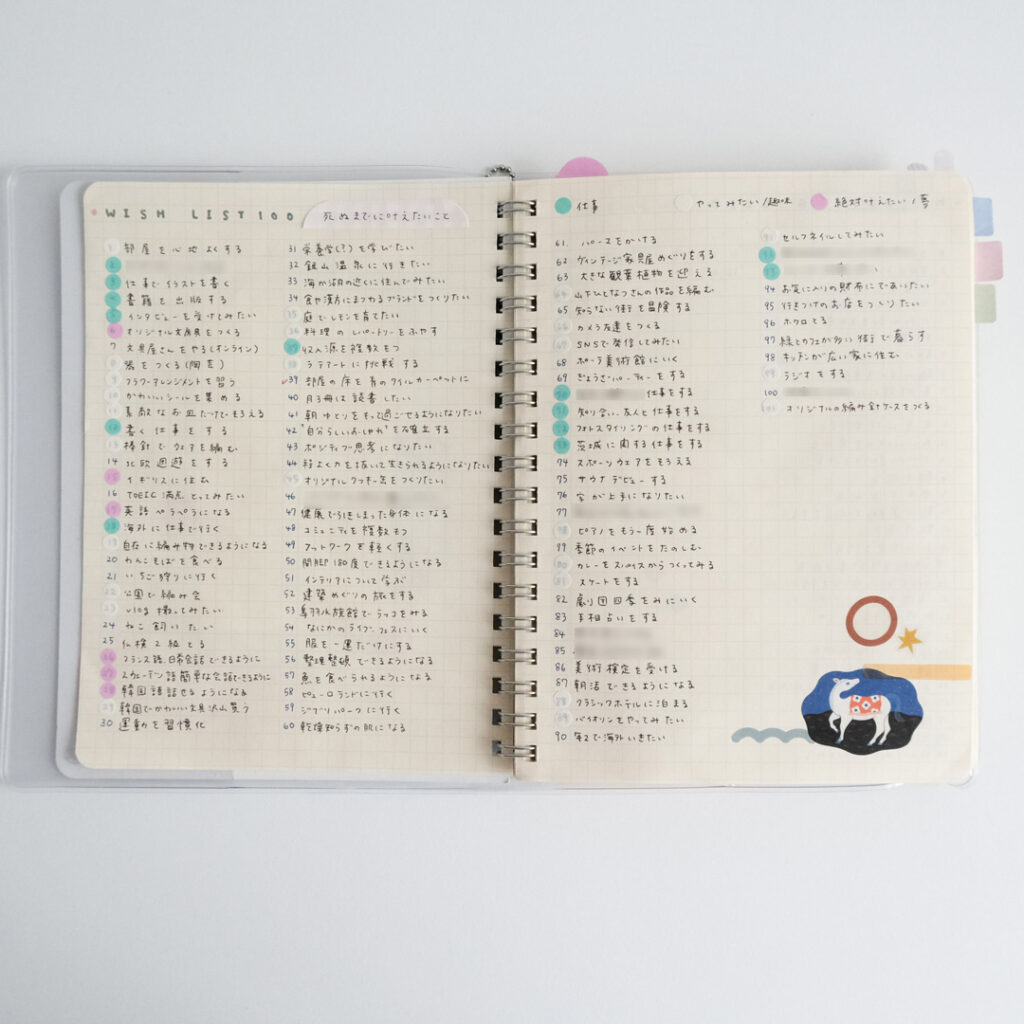 WISH LIST 100
死ぬまでに叶えたいこと
1 部屋を心地よくする
2
3 仕事でイラストを書く
4 書籍を出版する
5 インタビューを受けてみたい
6 オリジナル文房具をつくる
7 文具屋さんをやる(オンライン)
8 器をつくる(陶芸)
9 フラワーアレンジメントを習う
10 かわいいシールを集める
11 素敵なお皿だけでそろえる
12 書く仕事をする
13 棒針でウェアを編む
14 北欧周遊をする
15 イギリスに住む
16 TOEIC 満点とってみたい
17 英語ペラペラになる
18 海外に仕事で行く
19 自在に編み物できるようになる
20 わんこそばを食べる
21 いちご狩りに行く
22 公園で編み会
23 vlog 撮ってみたい
24 ねこ飼いたい
25 仏検2級とる
26 フランス語、日常会話できるように
27 スウェーデン語簡単な会話できるように
28 韓国語話せるようになる
29 韓国でかわいい文具沢山買う
30 運動を習慣化
31 栄養学(?)を学びたい
32 銀山温泉に行きたい
33 海か湖の近くに住んでみたい
34 食や漢方にまつわるブランドをつくりたい
35 庭でレモンを育てたい
36 料理のレパートリーをふやす
37 収入源を複数もつ
38 ラテアートに挑戦する
39 部屋の床を青のタイルカーペットに
40 月3冊は読書したい
41 朝ゆとりをもって過ごせるようになりたい
42 "自分らしいおしゃれ"を確立する
43 ポジティブ思考になりたい
44 程よく力を抜いて生きられるようになりたい
45 オリジナルクッキー缶をつくりたい
46
47 健康で引きしまった身体になる
48 コミュニティを複数もつ
49 フットワークを軽くする
50 開脚180度できるようになる
51 インテリアについて学ぶ
52 建築めぐりの旅をする
53 鳥羽水族館でラッコをみる
54 なにかのライブ、フェスにいく
55 服を一軍だけにする
56 整理整頓できるようになる
57 魚を食べられるようになる
58 ピューロランドに行く
59 ジブリパークに行く
60 乾燥知らずの肌になる
仕事
やってみたい/趣味
絶対叶えたい/夢
61. パーマをかける
62 ヴィンテージ家具屋めぐりをする
63 大きな観葉植物を迎える
64 山下ひとなつさんの作品を編む
65 知らない街を冒険する
66 カメラ友達をつくる
67 SNSで発信してみたい
68 ポーラ美術館にいく
69 ぎょうざパーティーをする
70 仕事をする
71 知り合い、友人と仕事をする
72 フォトスタイリングの仕事をする
73 茨城に関する仕事をする
74 スポーツウェアをそろえる
75 サウナデビューする
76 字が上手になりたい
77
78 ピアノをもう一度始める
79 季節のイベントをたのしむ
80 カレーをスパイスからつくってみる
81 スケートをする
82 劇団四季をみにいく
83 手相占いをする
84
85
86 美術検定を受ける
87 朝活できるようになる
88 クラシックホテルに泊まる
89 バイオリンをやってみたい
90 年2で海外いきたい
91 セルフネイルしてみたい
92
93 い
94 お気に入りの財布にであいたい
95 行きつけのお店をつくりたい
96 ホクロてる
97 緑とカフェが多い街で暮らす
98 キッチンが広い家に住む
99 ラジオをする
100
101 オリジナルの編み針ケースをつくる